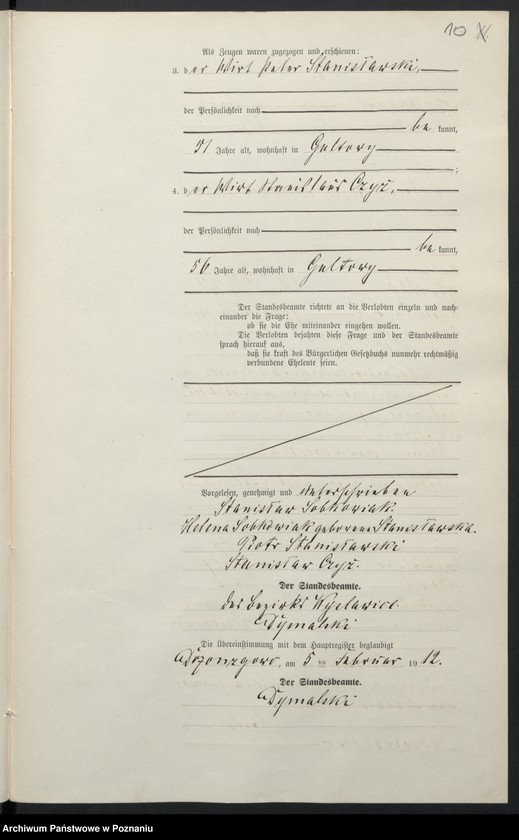 10
Als Zeugen waren zugezogen und erschienen:
3. der Wirt Peter Stanisławski,
der Persönlichkeit nach
be kannt,
51 Jahre alt, wohnhaft in Gultowy
;
4. der Wirt Stanislaus Czyż,
der Persönlichkeit nach
be kannt,
56 Jahre alt, wohnhaft in Gultowy
Der Standesbeamte richtete an die Verlobten einzeln und nach-
einander die Frage:
ob sie die Ehe miteinander eingehen wollen.
Die Verlobten bejahten diese Frage und der Standesbeamte
sprach hierauf aus,
daß sie kraft des Bürgerlichen Gesetzbuchs nunmehr rechtmäßig
verbundene Eheleute seien.
Vorgelesen, genehmigt und unterschrieben
Stanisław Sobkowiak.
Helena Sobkowiak geborene Stanisławska.
Piotr Stanisławski
Stanisław Czyż.
Der Standesbeamte.
des Bezirks
Dymalski
Die Übereinstimmung mit dem Hauptregister beglaubigt
am 5 ten Februar 1912.
Der Standesbeamte.
Dymalski
Archiwum Państwowe w Poznaniu